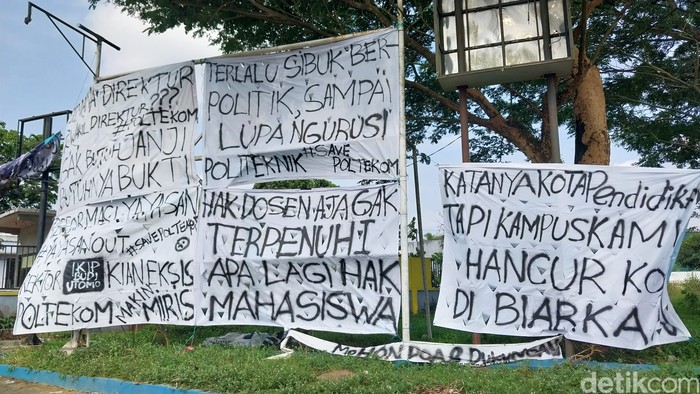 DIREKTUR
DIREKTUR??
#POLTEKOM
BUTUH JANJI
BUTUHNYA BUKTI
TERLALU SIBUK BER
POLITIK, SAMPAI
LUPA NGURUSI
POLITEKNIK #SAVE
POLTEKOM
YAYASAN
OUT
#SAVEPOLTEKOM
IKIP
BUDI
UTOMO
KIAN EKSIS
POLTEKOM MAKIN MIRIS
HAK DOSEN AJA GAK
TERPENUHI
APA LAGI HAK
MAHASISWA
KATANYA KOTA Pendidik
TAPI KAMPUS KAMI
HANCUR KO
DI BIARKA
MOHON DOA & DUKUNGAN
detikcom